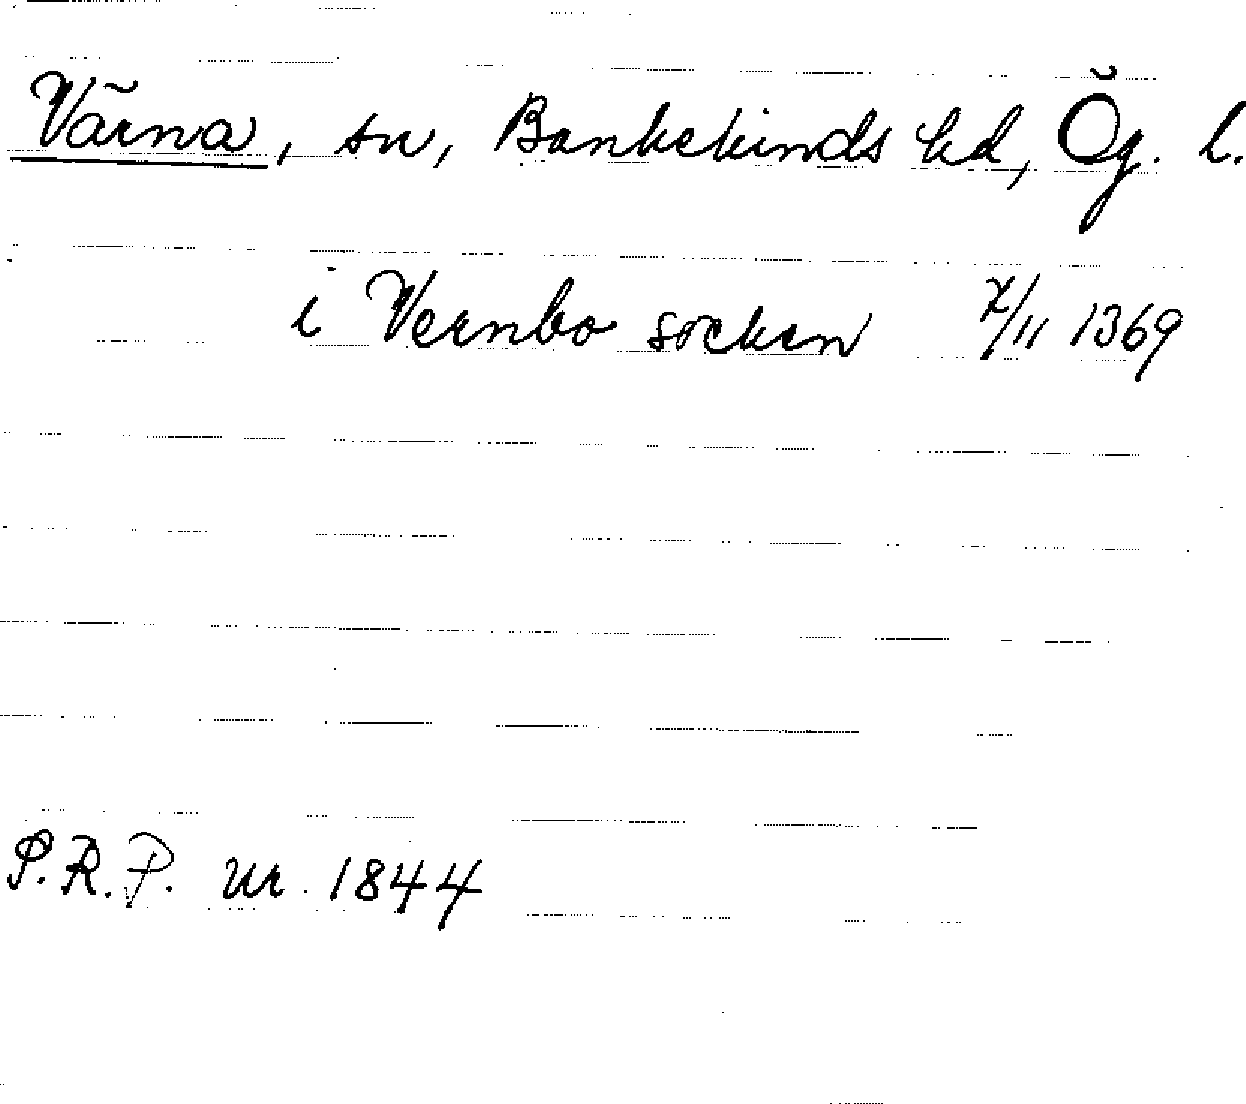 Värna, sn, Bankekinds hd, Ög. l.
i Vernbo socken 7/11 1369
P.R.P. nr. 1844